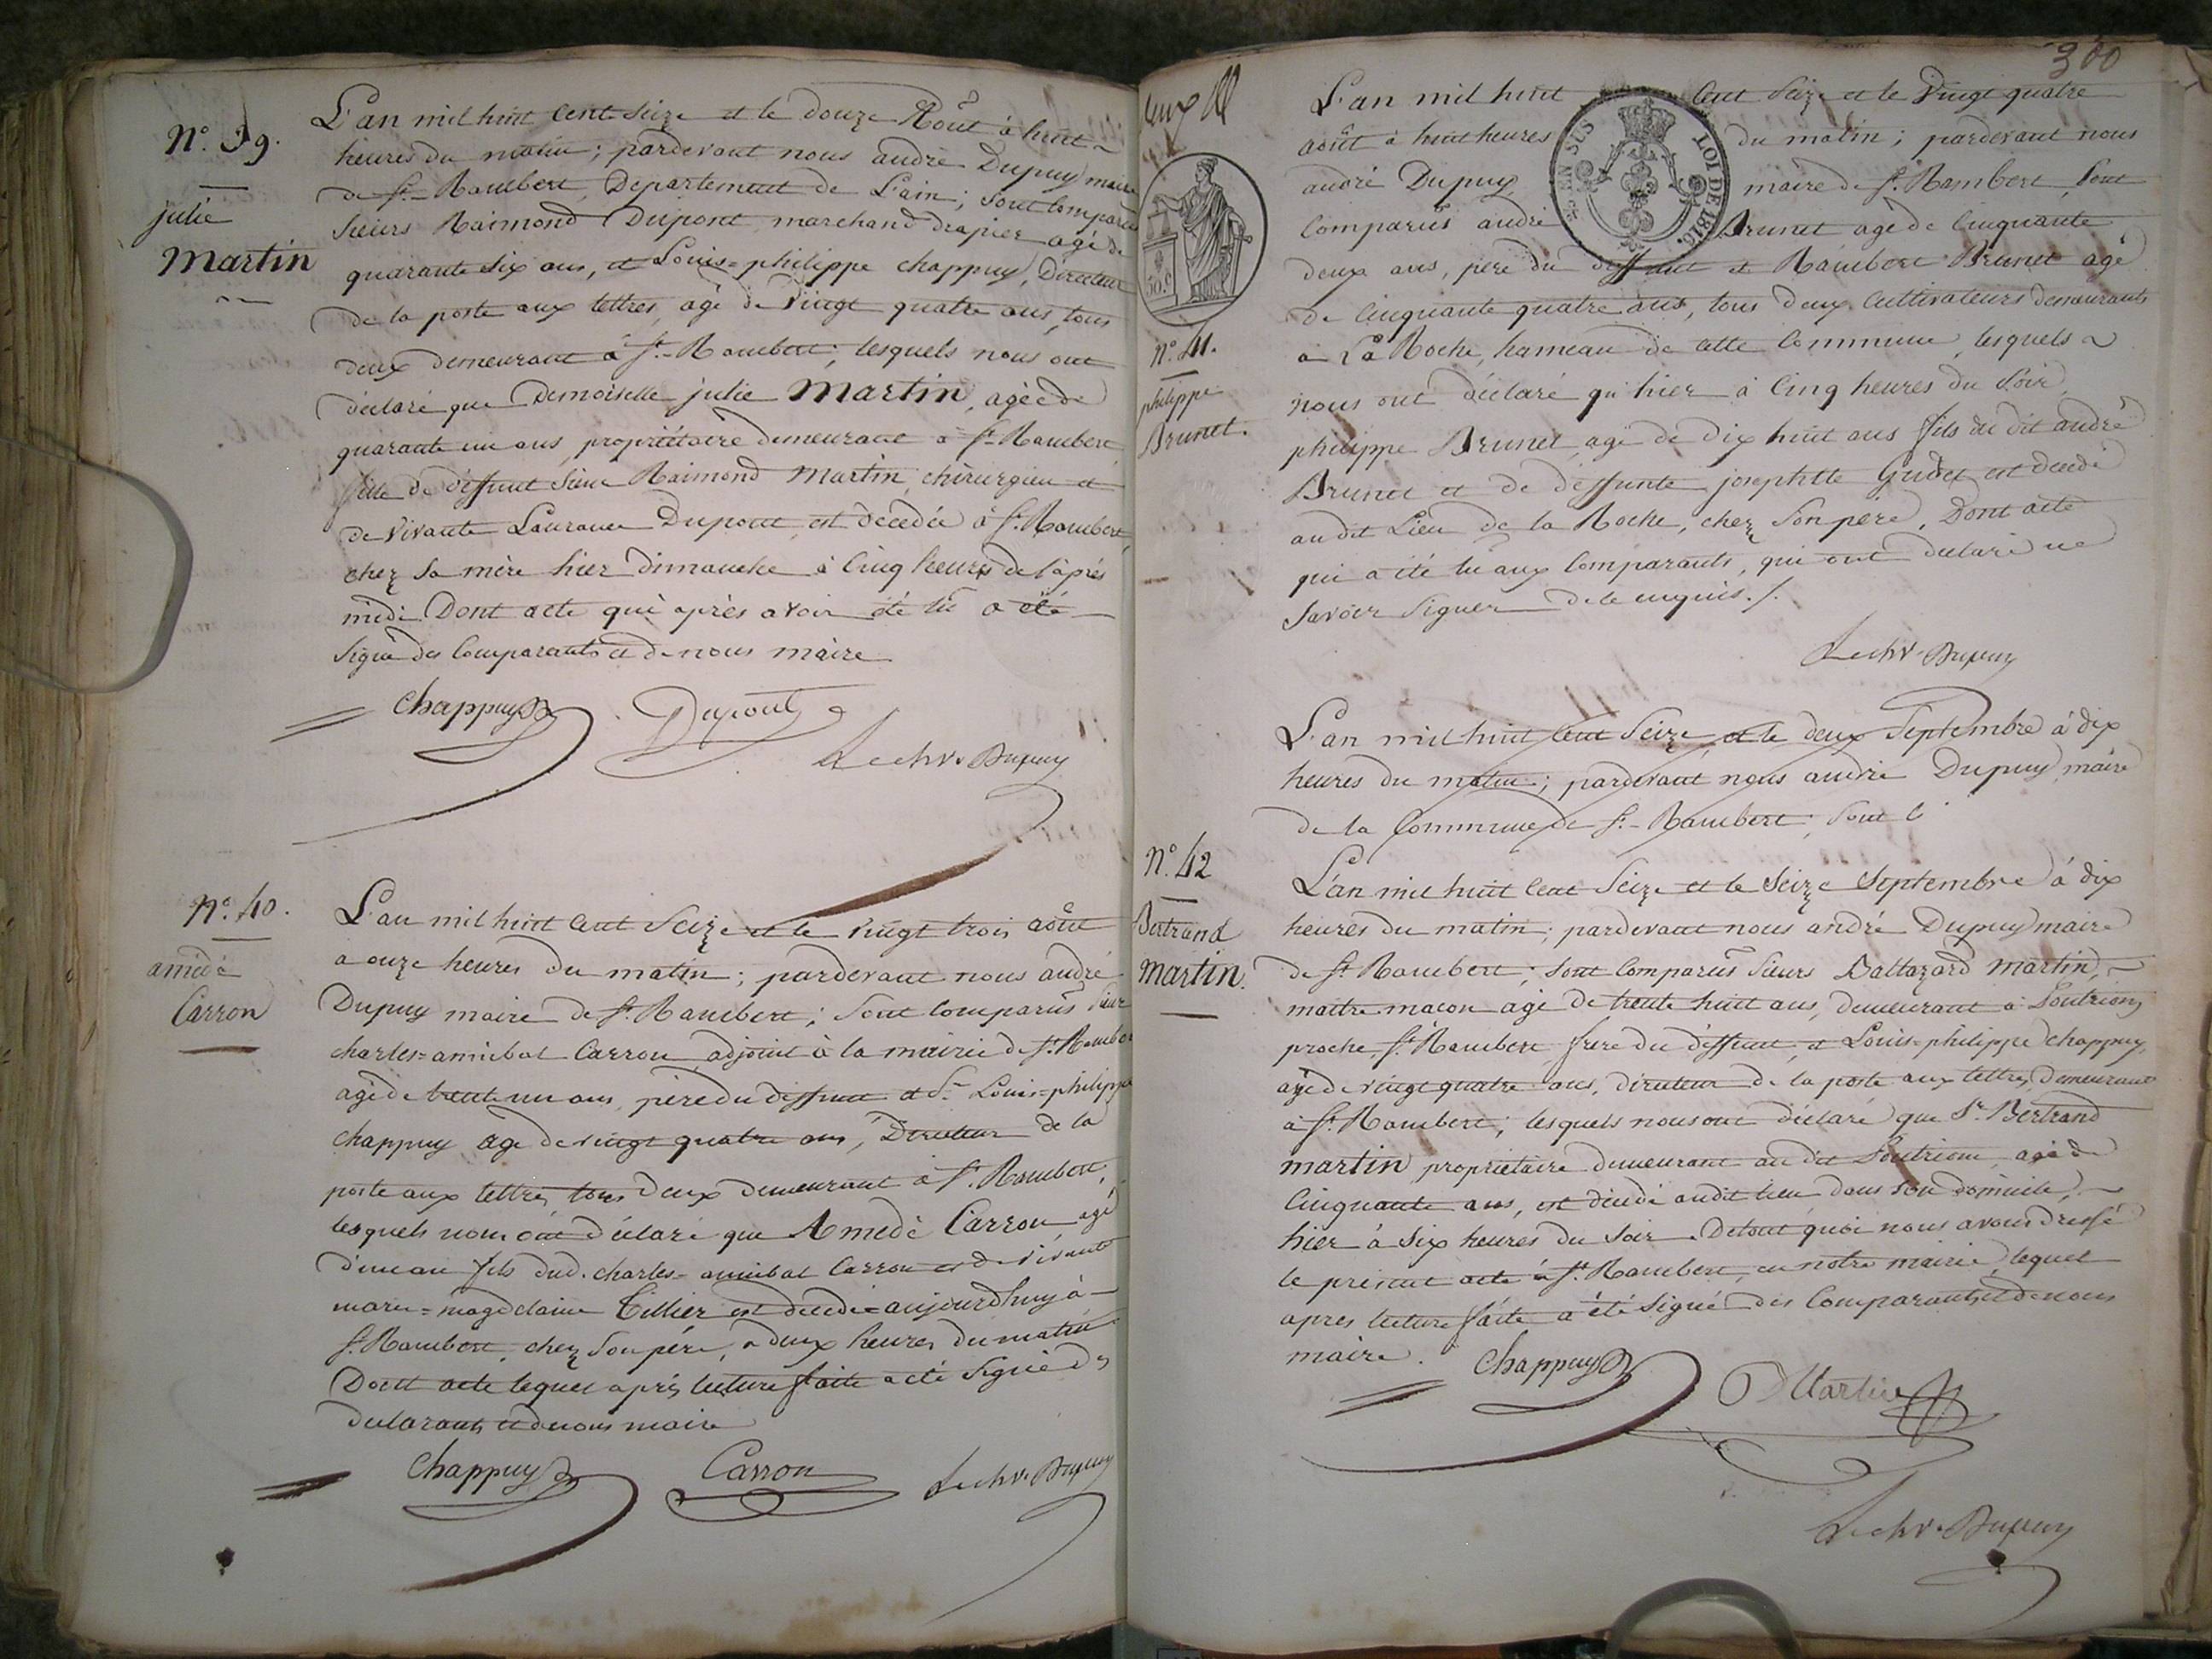 N.º 39.
julie
Martin
L'an mil huit cent seize et le douze Aoüt à huit
heures du matin; pardevant nous andré Dupuy maire
de St. Rambert, Departement de L'ain; sont comparus
sieurs Raimond Dupont marchand drapier agé de
quarante six ans, et Louis=philippe chappuy, Directeur
de la poste aux lettres, agé de vingt quatre ans, tous
deux demeurant à St. Rambert; lesquels nous ont
déclaré que Demoiselle julie Martin, agée de
quarante un ans, propriétaire demeurant à St. Rambert
fille de deffunt sieur Raimond Martin, chirurgien et
de vivante Laurance Dupont est décédée à St. Rambert,
chez sa mère hier dimanche à cinq heures de l'après
midi. Dont acte qui après avoir été lu a été
signé des comparants et de nous maire
chappuy Dupont
Le chr. Dupuy
N.º 40.
amédé
Carron
L'an mil huit cent seize et le vingt trois aoüt
a onze heures du matin; pardevant nous andré
Dupuy maire de St. Rambert; sont comparus sieur
charles=annibal Carron, adjoint à la mairie de St. Rambert
agé de trente un ans, père du deffunt et Sr. Louis=philippe
chappuy agé de vingt quatre ans, Directeur de la
poste aux lettres, tous deux demeurant à St. Rambert;
lesquels nous ont déclaré que Amedé Carron, agé
d'un an fils dud. charles=annibal Carron et de vivante
marie=magdelaine Tillier est décédé aujourdhuy à
St. Rambert, chez son père, a deux heures du matin
Dont acte lequel après lecture faite a été signé des
declarants et de nous maire
chappuy Carron Le chr. Dupuy
300
EN SUS
LOI DE 1816.
50.c
N.º 41.
philippe
Brunet.
L'an mil huit cent seize et le vingt quatre
août à huit heures du matin; pardevant nous
andré Dupuy maire de St. Rambert, sont
comparus andré Brunet agé de cinquante
deux ans, père du deffunt et Rambert Brunet agé
de cinquante quatre ans, tous deux cultivateurs demeurants
à La Roche, hameau de cette commune, lesquels
nous ont déclaré qu'hier à cinq heures du soir
philippe Brunet agé de dix huit ans fils du dit andré
Brunet et de deffunte josephtte est décédé
audit Lieu de la Roche, chez son père. Dont acte
qui a été lu aux comparants, qui ont déclaré ne
savoir signer de ce enquis./.
Le chr. Dupuy
L'an mil huit cent seize et le deux septembre à dix
heures du matin; pardevant nous andré Dupuy maire
de la commune de St. Rambert; sont c
N.º 42
Bertrand
martin.
L'an mil huit cent seize et le seize septembre à dix
heures du matin; pardevant nous andré Dupuy maire
de St. Rambert; sont comparus sieurs Baltazard martin,
maitre maçon agé de trente huit ans, demeurant à
proche, St. Rambert frere du deffunt, et Louis=philippe chappuy,
agé de vingt quatre ans, directeur de la poste aux lettres, demeurant
à St. Rambert; lesquels nous ont déclaré que Sr. Bertrand
martin propriétaire demeurant au dit agé de
cinquante ans, est décédé audit lieu dans son domicile,
hier à six heures du soir. De tout quoi nous avons dressé
le présent acte à St. Rambert, en notre mairie, lequel
apres lecture faite a été signé des comparants et de nous
maire.
chappuy Martin
Le chr. Dupuy